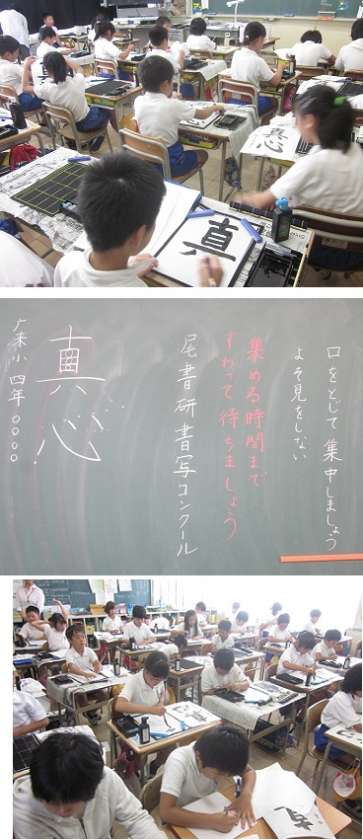 真心
真
口をとじて集中しましょう
よそ見をしない
集める時間まで
すわって待ちましょう
尾書研書写コンクール
真心
小 四年 〇〇〇〇